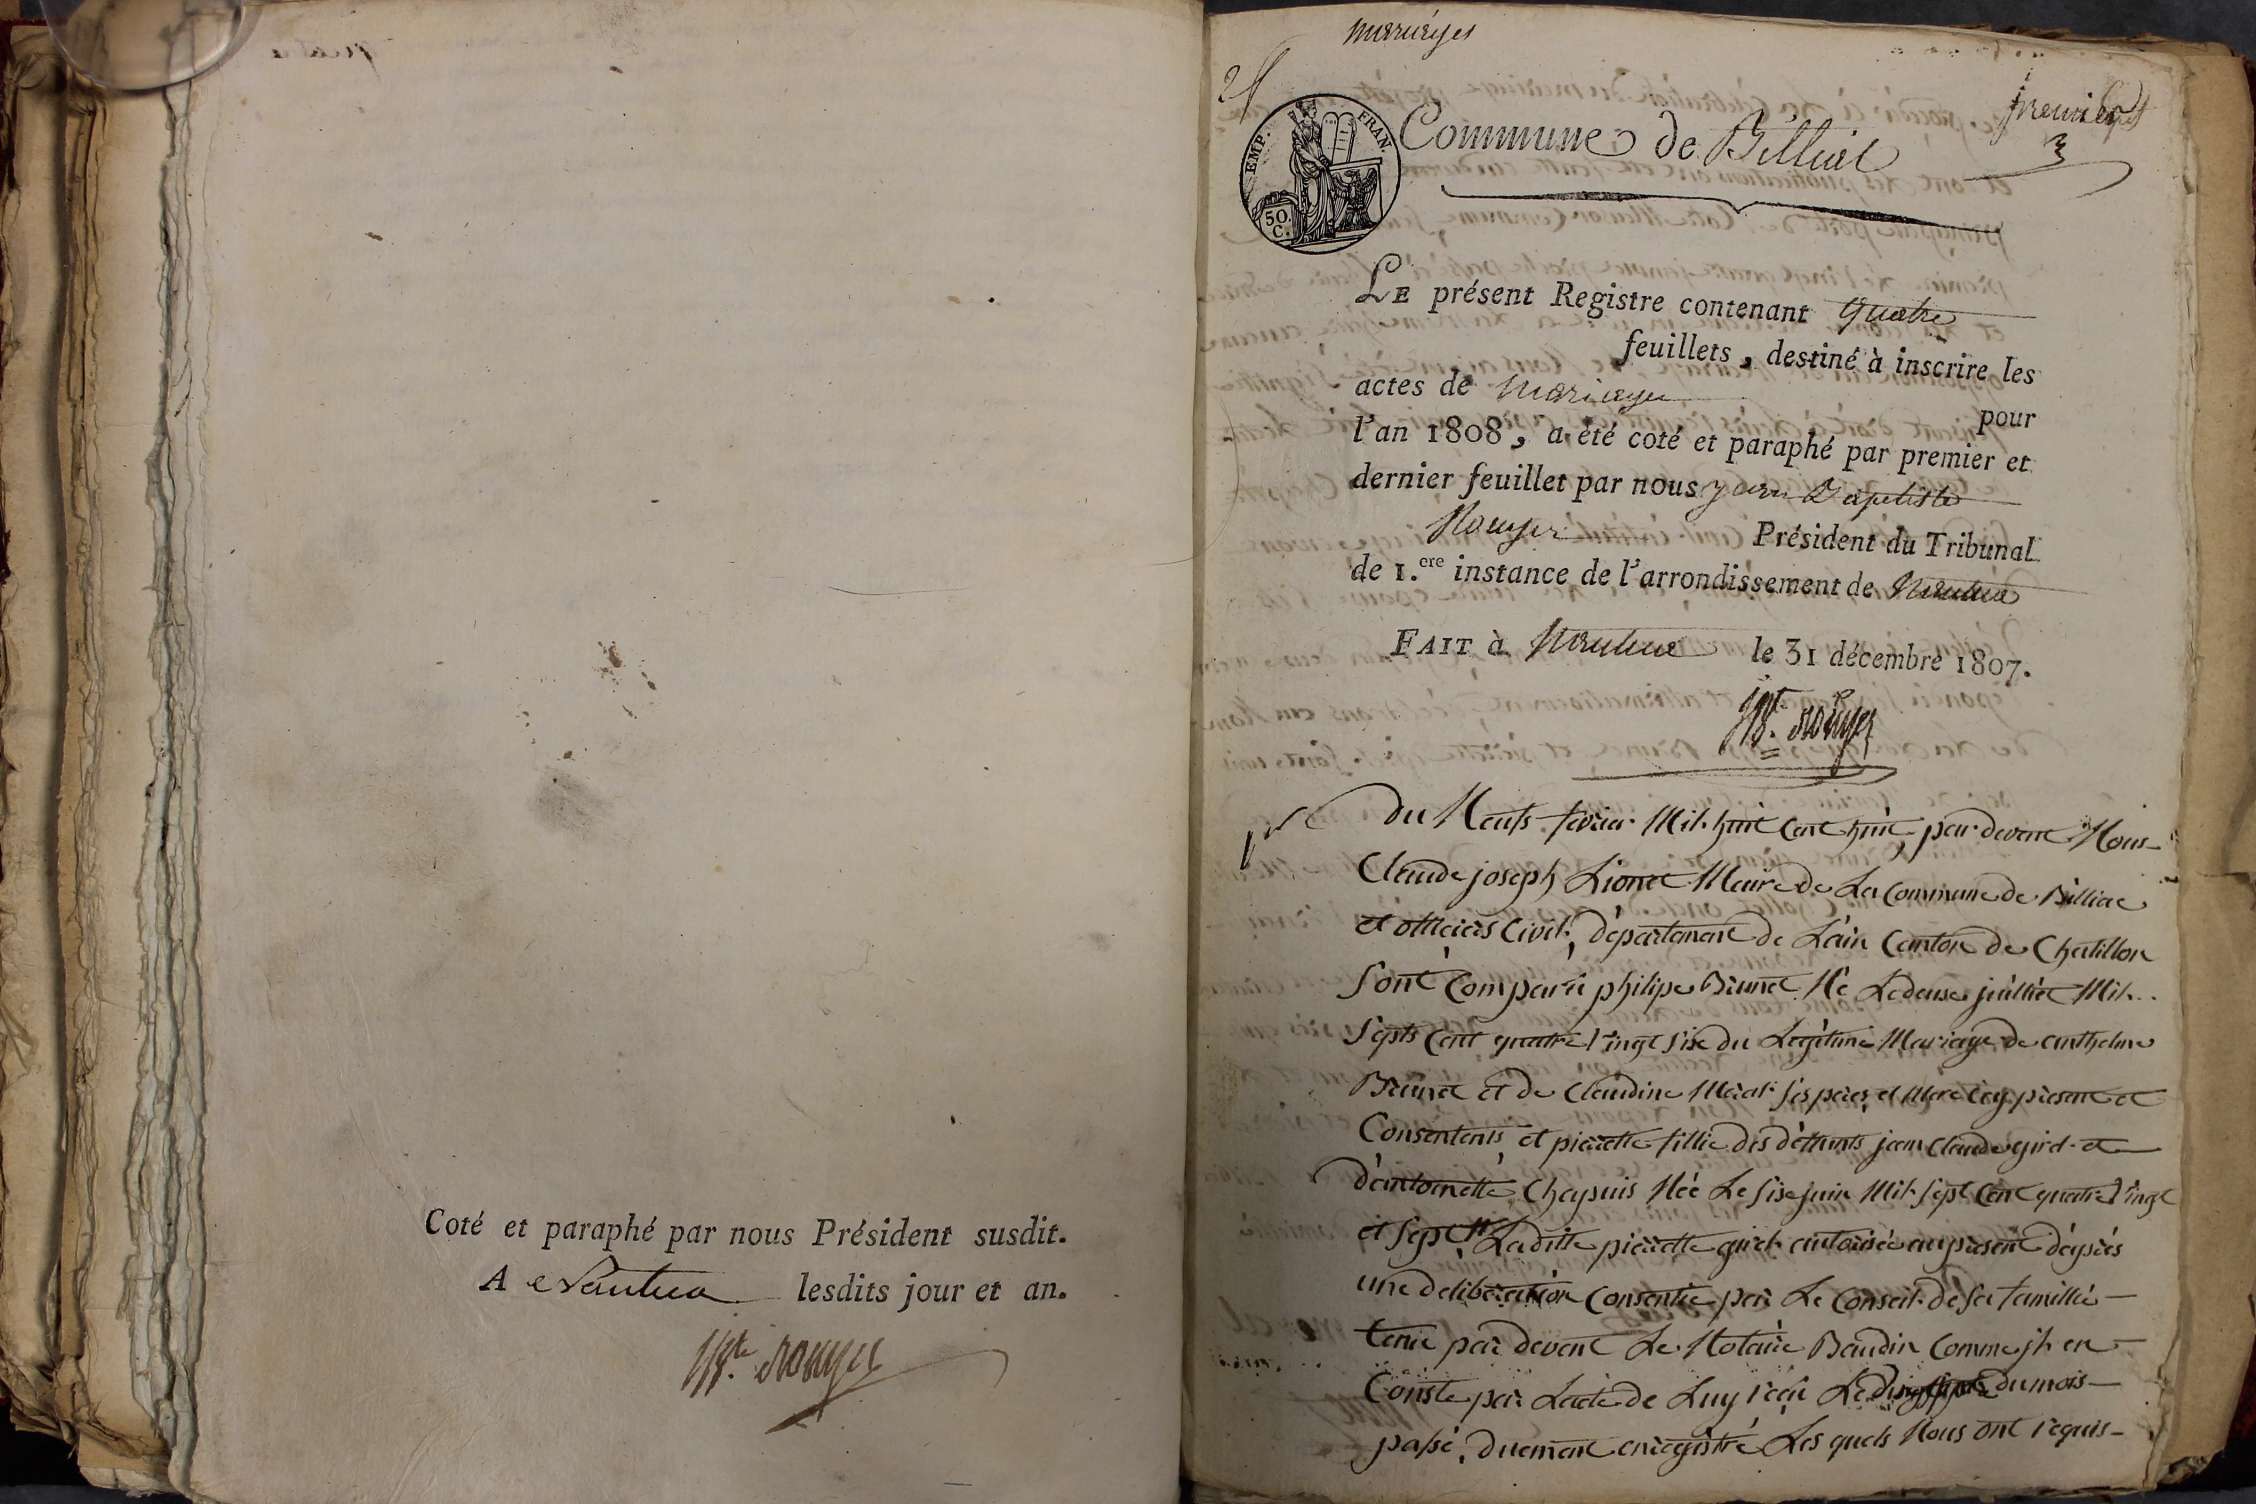 Coté et paraphé par nous Président susdit.
A Nantua lesdits jour et an.
JBte Rouyer
mariages
premier
EMP. FRAN.
50. C.
Commune de Billiat
LE présent Registre contenant quatre
feuillets, destiné à inscrire les
actes de mariages pour
l'an 1808, a été coté et paraphé par premier et
dernier feuillet par nous jean Baptiste
Rouyer Président du Tribunal
de 1.ere instance de l'arrondissement de Nantua
FAIT à Nantua le 31 décembre 1807.
JBt. Rouyer
1er
du Neufs fevrier Mil huit Cent huit, par devent Nous
Claude joseph Lionet Maire de La Commune de Billiat
et officiers Civil, département de L'ain Canton de Chatillon
Sont Comparu philipe Brunet Né Ledeuse juilliet Mil
Septs Cent quatre Vingt Sise du Legitime Mariage de anthelme
Brunet et de Claudine Mérat Ses peres et Mere icy present et
Consentents, et pierrette fillie des deffunts jean Claude giret et
d'antoinette Chapuis Née Le Sise juin Mil Sept Cent quatre Vingt
et Sept Laditte pierrette giret autorisée au présent d'après
une deliberation Consentie par Le Conseil de Sa famillie
tenu par devent Le Notaire Baudin Comme jl en
Conste par Lacte de Luy reçu Le du mois
passé, duement enregistré Les quels Nous ont requis